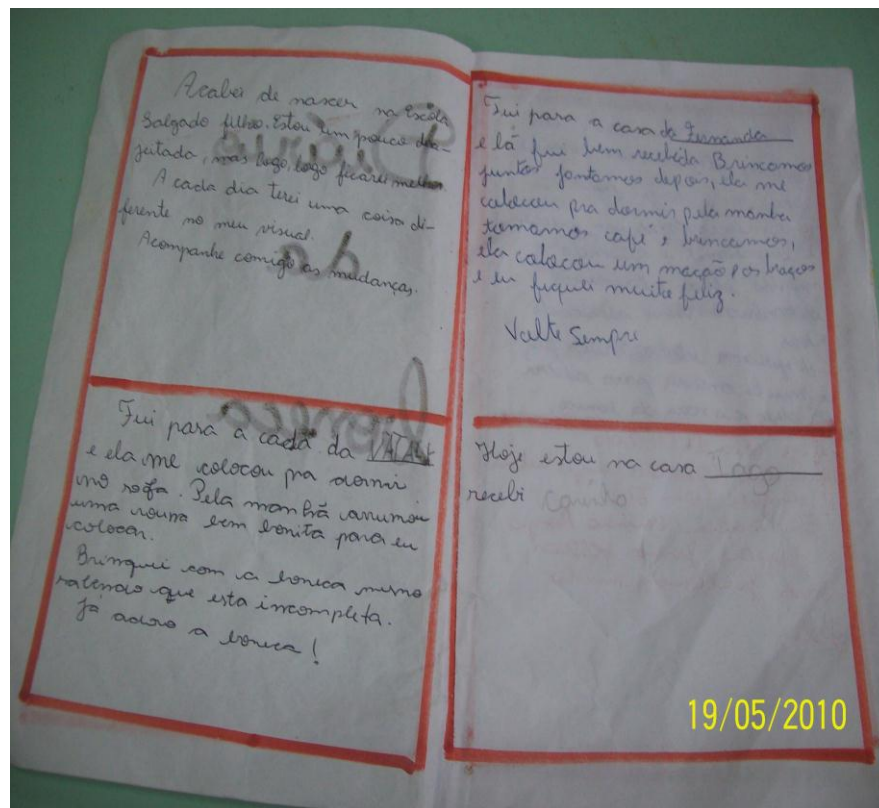 Acabei de nascer na Escola
Salgado filho. Estou um pouco des-
jeitada, mas logo, logo ficarei melhor.
A cada dia terei uma coisa di-
ferente no meu visual.
Acompanhe comigo as mudanças.
Fui para a cada da
e ela me colocou pra dormi
no sofa. Pela manhã arrumou
uma roupa bem bonita para eu
colocar.
Brinquei com a boneca mesmo
sabendo que esta incompleta.
Já adoro a boneca!
Fui para a casa da Fernanda
e lá fui bem recebida Brincamos
juntos jantamos depois, ela me
colocou pra dormir pela manha
tomamos café e brincamos,
ela colocou um os braços
e eu muito feliz.
Volte Sempre
Hoje estou na casa
recebi carinho
Diário
da
boneca
19/05/2010